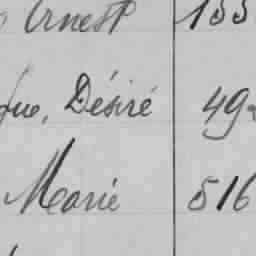 Ernest 133
fue, Désiré 49
Marie 516